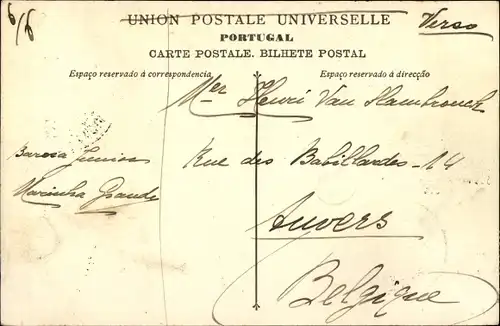 6/6
UNION POSTALE UNIVERSELLE
Verso
PORTUGAL
CARTE POSTALE. BILHETE POSTAL
Espaço reservado á correspondencia
Espaço reservado á direcção
Mer Henri Van Hambrouck
Barosa Junior
Rue des Babillardes - 14
Marinha Grande
Anvers
Belgique